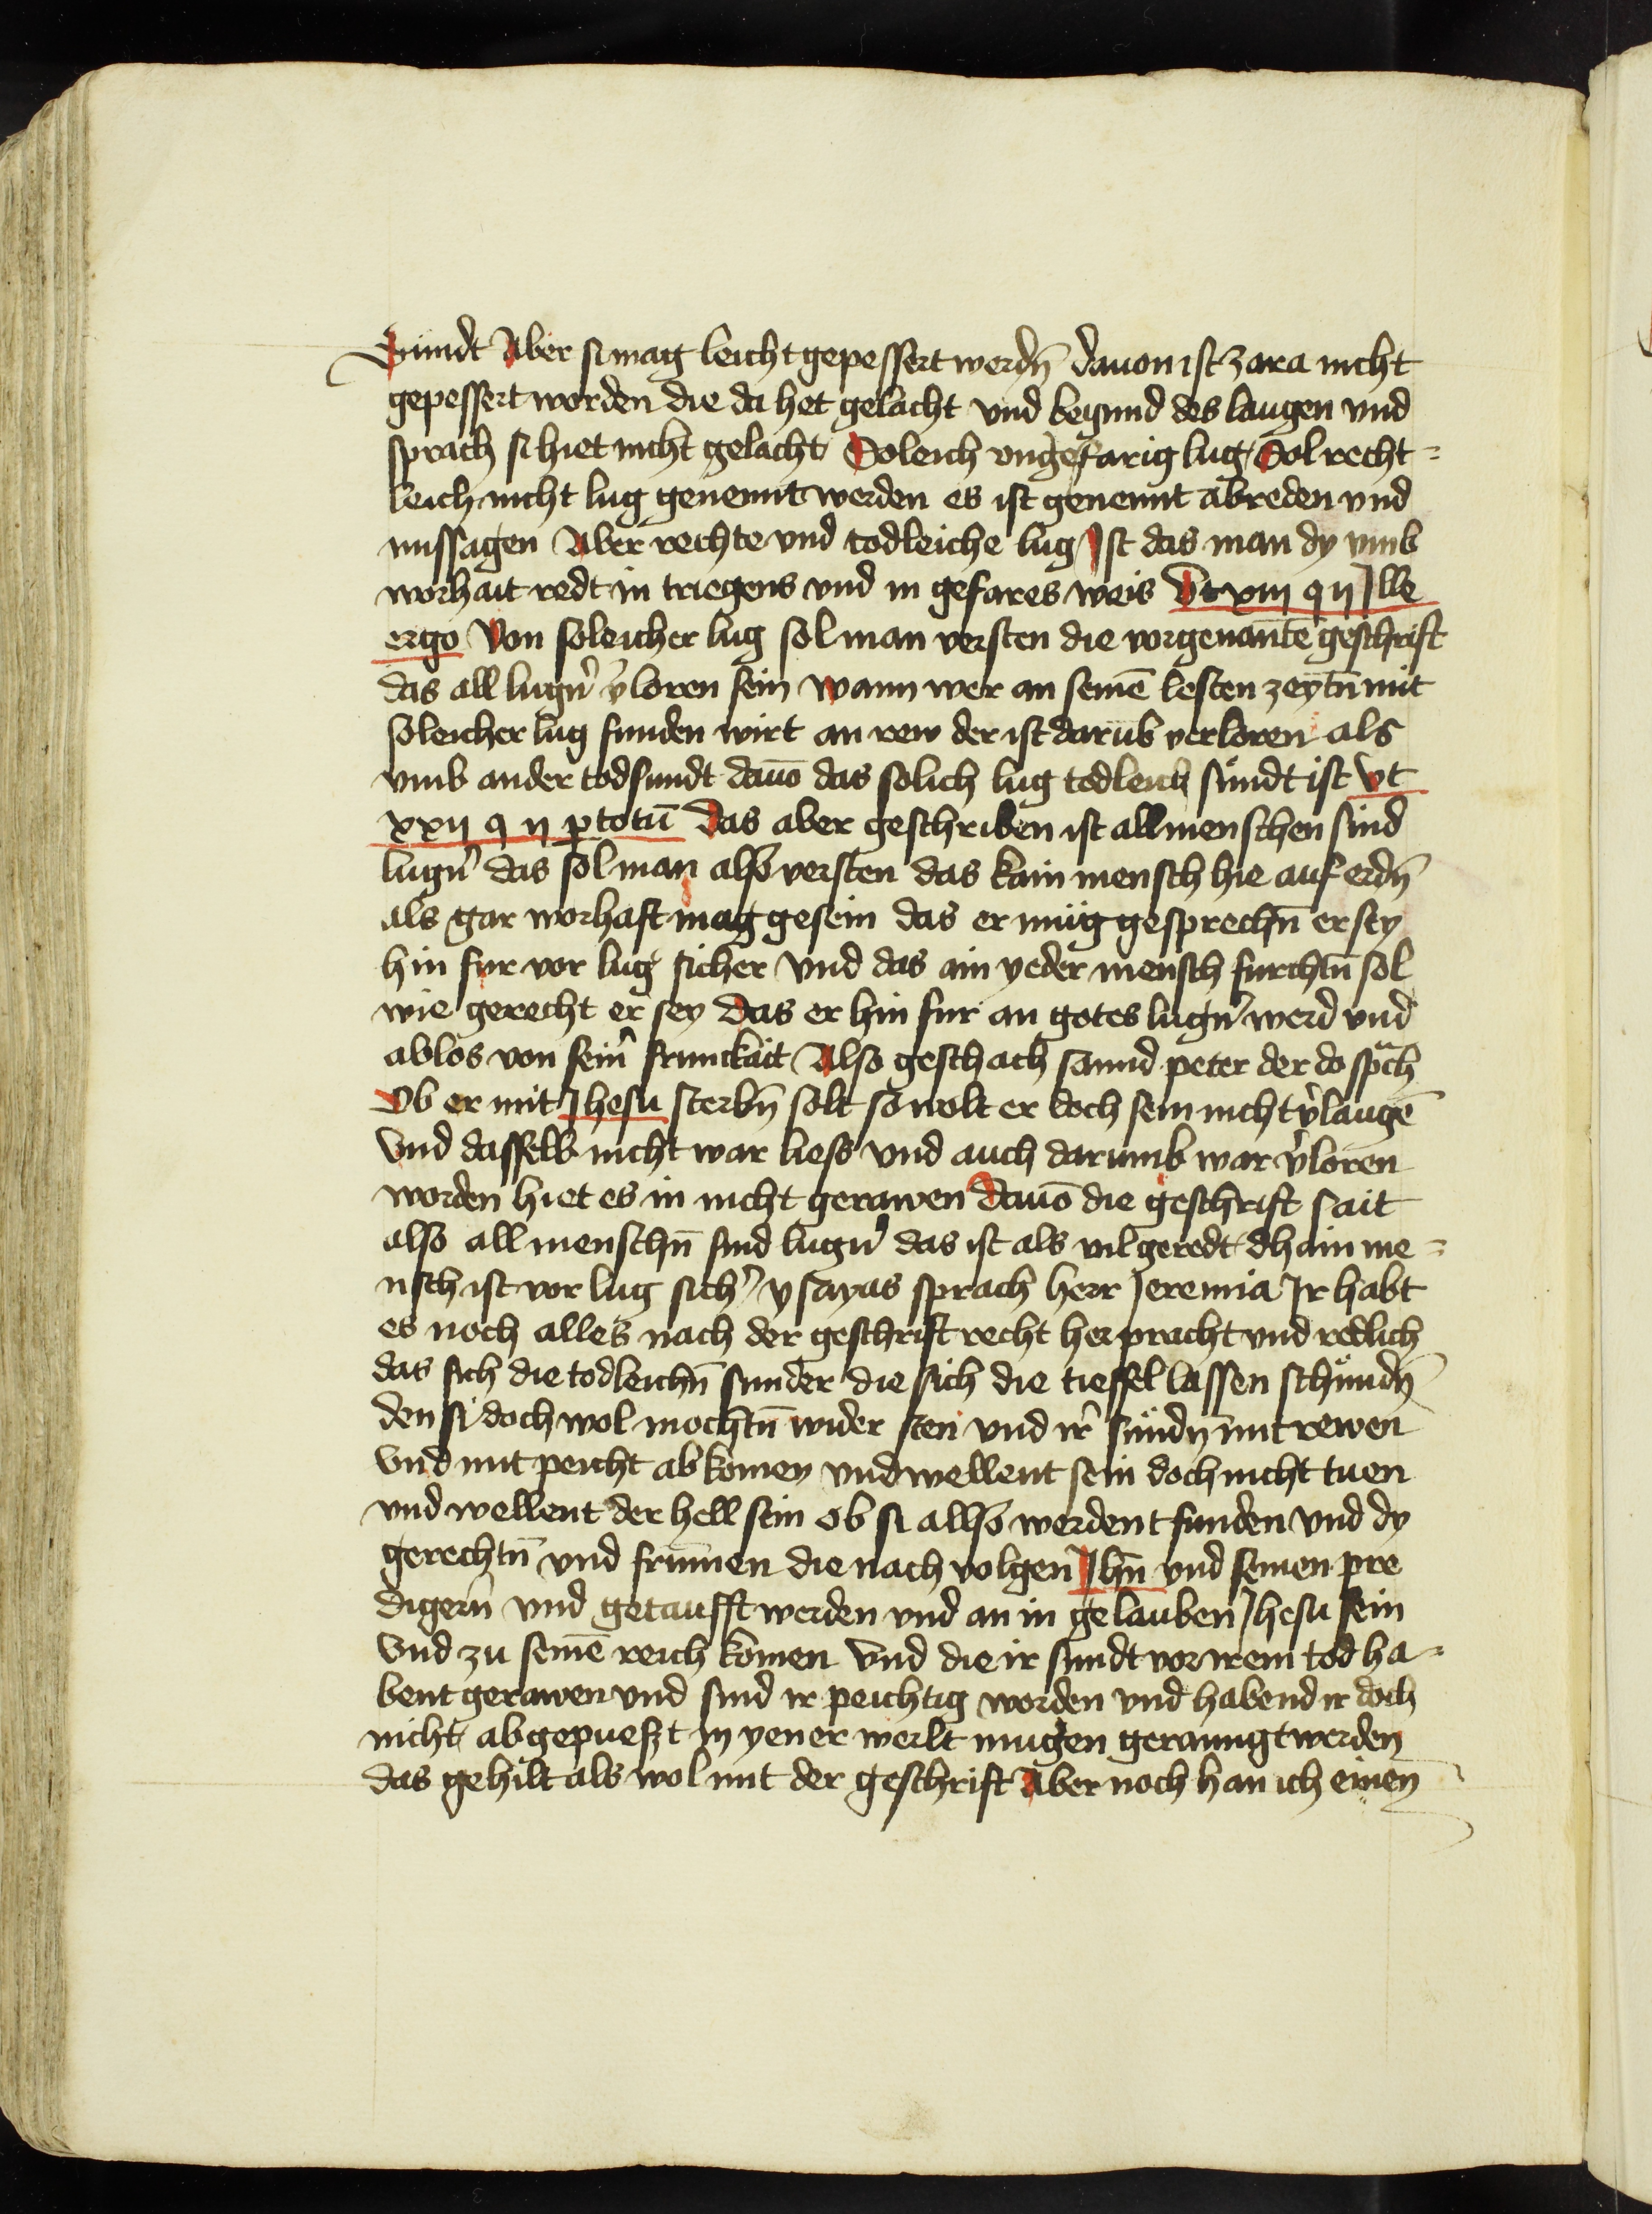 Sündt Aber si mag leicht gepessert werdn̄ dauon ist zara nicht
gepessert worden die da het gelacht vnd begund des laugen vnd
sprach si hiet nicht gelacht Soleich vngefarig lug Sol recht=
leich nicht lug genennt werden es ist genennt abreden vnd
missagen Aber rechte vnd todleiche lug Ist das man dy vmb
worhait redt in triegens vnd in gefares weis Vt xxiii q ii Ille
ergo Von soleicher lug sol man versten die vorgenante geschrift
das all lugn̉ v̉loren sein wann wer an seinē lesten zeytn̄ mit
soleicher lug funden wirt an rew der ist darūb verloren als
vmb ander todsundt dauō das solich lug todleich sündt ist vt
xxii q ii p totū Das aber geschriben ist all menschen sind
lugn̉ das sol man also versten das kain mensch hie auf erdn̄
als gar worhaft mag gesein das er müg gesprechn̄ er sey
hin fur vor lug sicher vnd das ain yeder mensch furchtn̄ sol
wie gerecht er sey Das er hin fur an gotes lugn̉ werd vnd
ablos von sein̉ frumckait Also geschach sannd peter der do spͣch
Ob er mit Jhesu sterbn̄ solt so wolt er doch sein nicht v̉laugē
vnd dasselb nicht war liess vnd auch darumb war v̉loren
worden hiet es in nicht gerawen Dauō die geschrift sait
also all menschn̄ sind lugn̉ das ist als vil geredt dhain me=
nsch ist vor lug sich̉ ysayas sprach herr Jeremia Ir habt
es noch alles nach der geschrift recht her pracht vnd redlich
das sich die todleichn̄ sunder die sich die tieffel lassen schündn̄
den si doch wol mochtn̄ wider sten vnd ir̉ sündn̄ mit rewen
vnd mit peicht ab komen vnd wellent sein doch nicht tuen
vnd wellent der hell sein ob si allso werdent funden vnd dy
gerechtn̄ vnd frūmen die nach volgen Jhū vnd seinen pre
digern̄ vnd getaufft werden vnd an in gelauben Jhesu sein
vnd zu seinē reich komen vnd die ir sundt vor irem tod ha=
bent gerawen vnd sind ir peichtig worden vnd habend ir doch
nicht abgepuesst in yener werlt mugen geraunigt werden
das gehilt als wol mit der geschrift Aber noch han ich einen